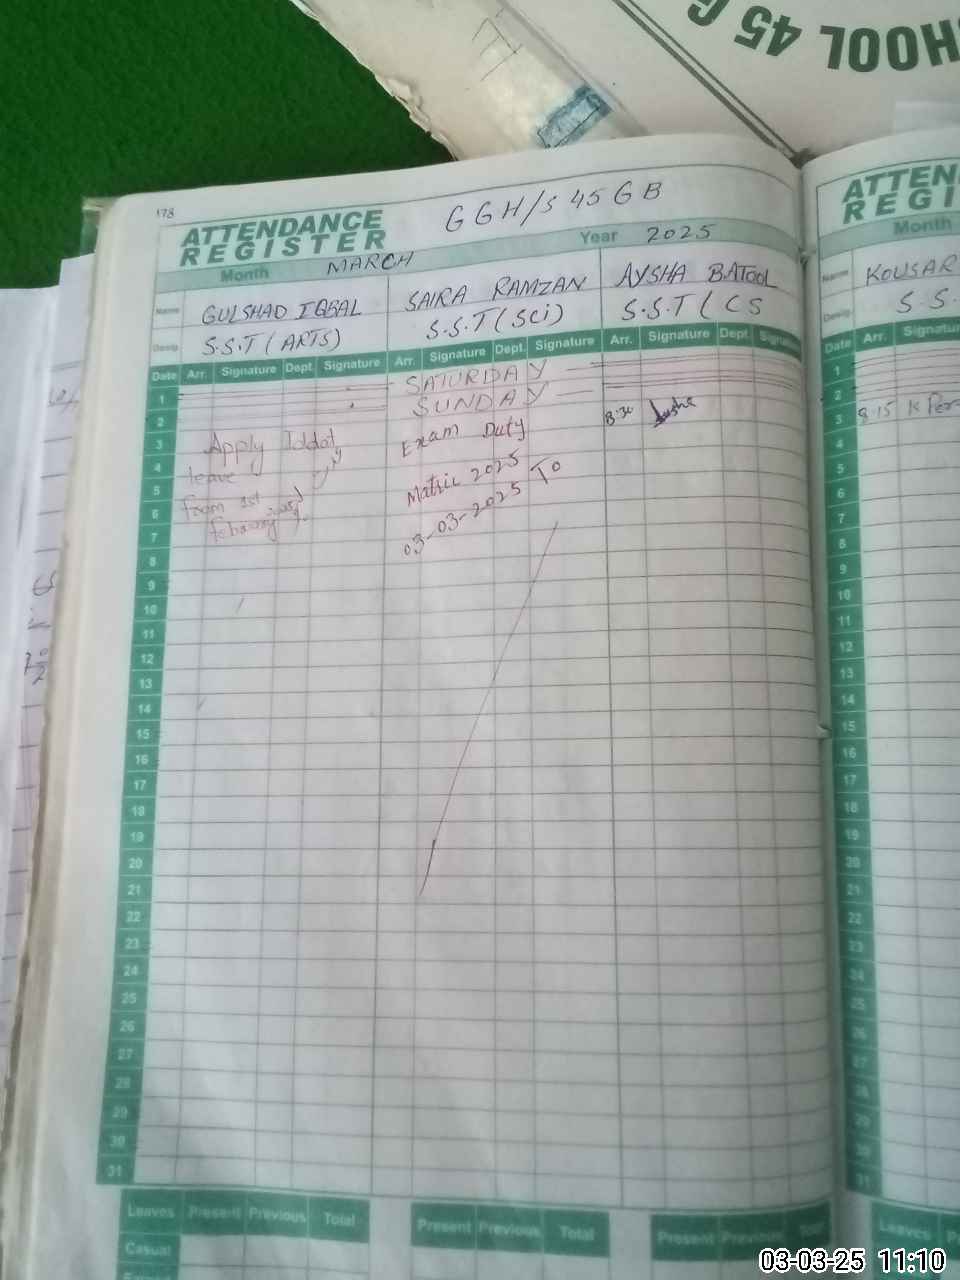 HOOL 45 G
178
ATTENDANCE
REGISTER
GGH/S 45 GB
Month MARCH Year 2025
Name GULSHAD IQBAL SAIRA RAMZAN AYSHA BATOOL
Desig. S.S.T (ARTS) S.S.T (Sci) S.S.T (CS
Date Arr. Signature Dept. Signature Arr. Signature Dept. Signature Arr. Signature Dept. Signature
1 SATURDAY
2 SUNDAY
3 Apply Iddat Exam Duty 8:30
4 leave
5 From 1st Matric 2025
6 february 03-03-2025 To
7
8
9
10
11
12
13
14
15
16
17
18
19
20
21
22
23
24
25
26
27
28
29
30
31
Leaves Present Previous Total Present Previous Total Present Previous Total
Casual
ATTEN
REGI
Month
Name KOUSAR
Desig. S.S.
Date Arr. Signatur
1
2
3 8:15 K Per
4
5
6
7
8
9
10
11
12
13
14
15
16
17
18
19
20
21
22
23
24
25
26
27
28
29
30
31
Leaves Present
Casual
03-03-25 11:10